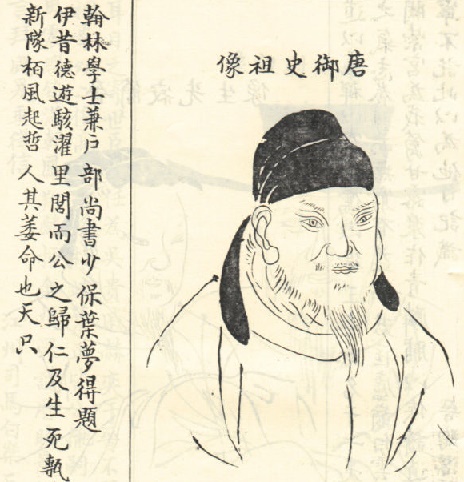 唐御史祖像
翰林學士兼戶部尚書少保葉夢得題
伊昔德遊駭濯里閭而公之歸仁及生死執
新隊栢風起哲人其萎命也天只